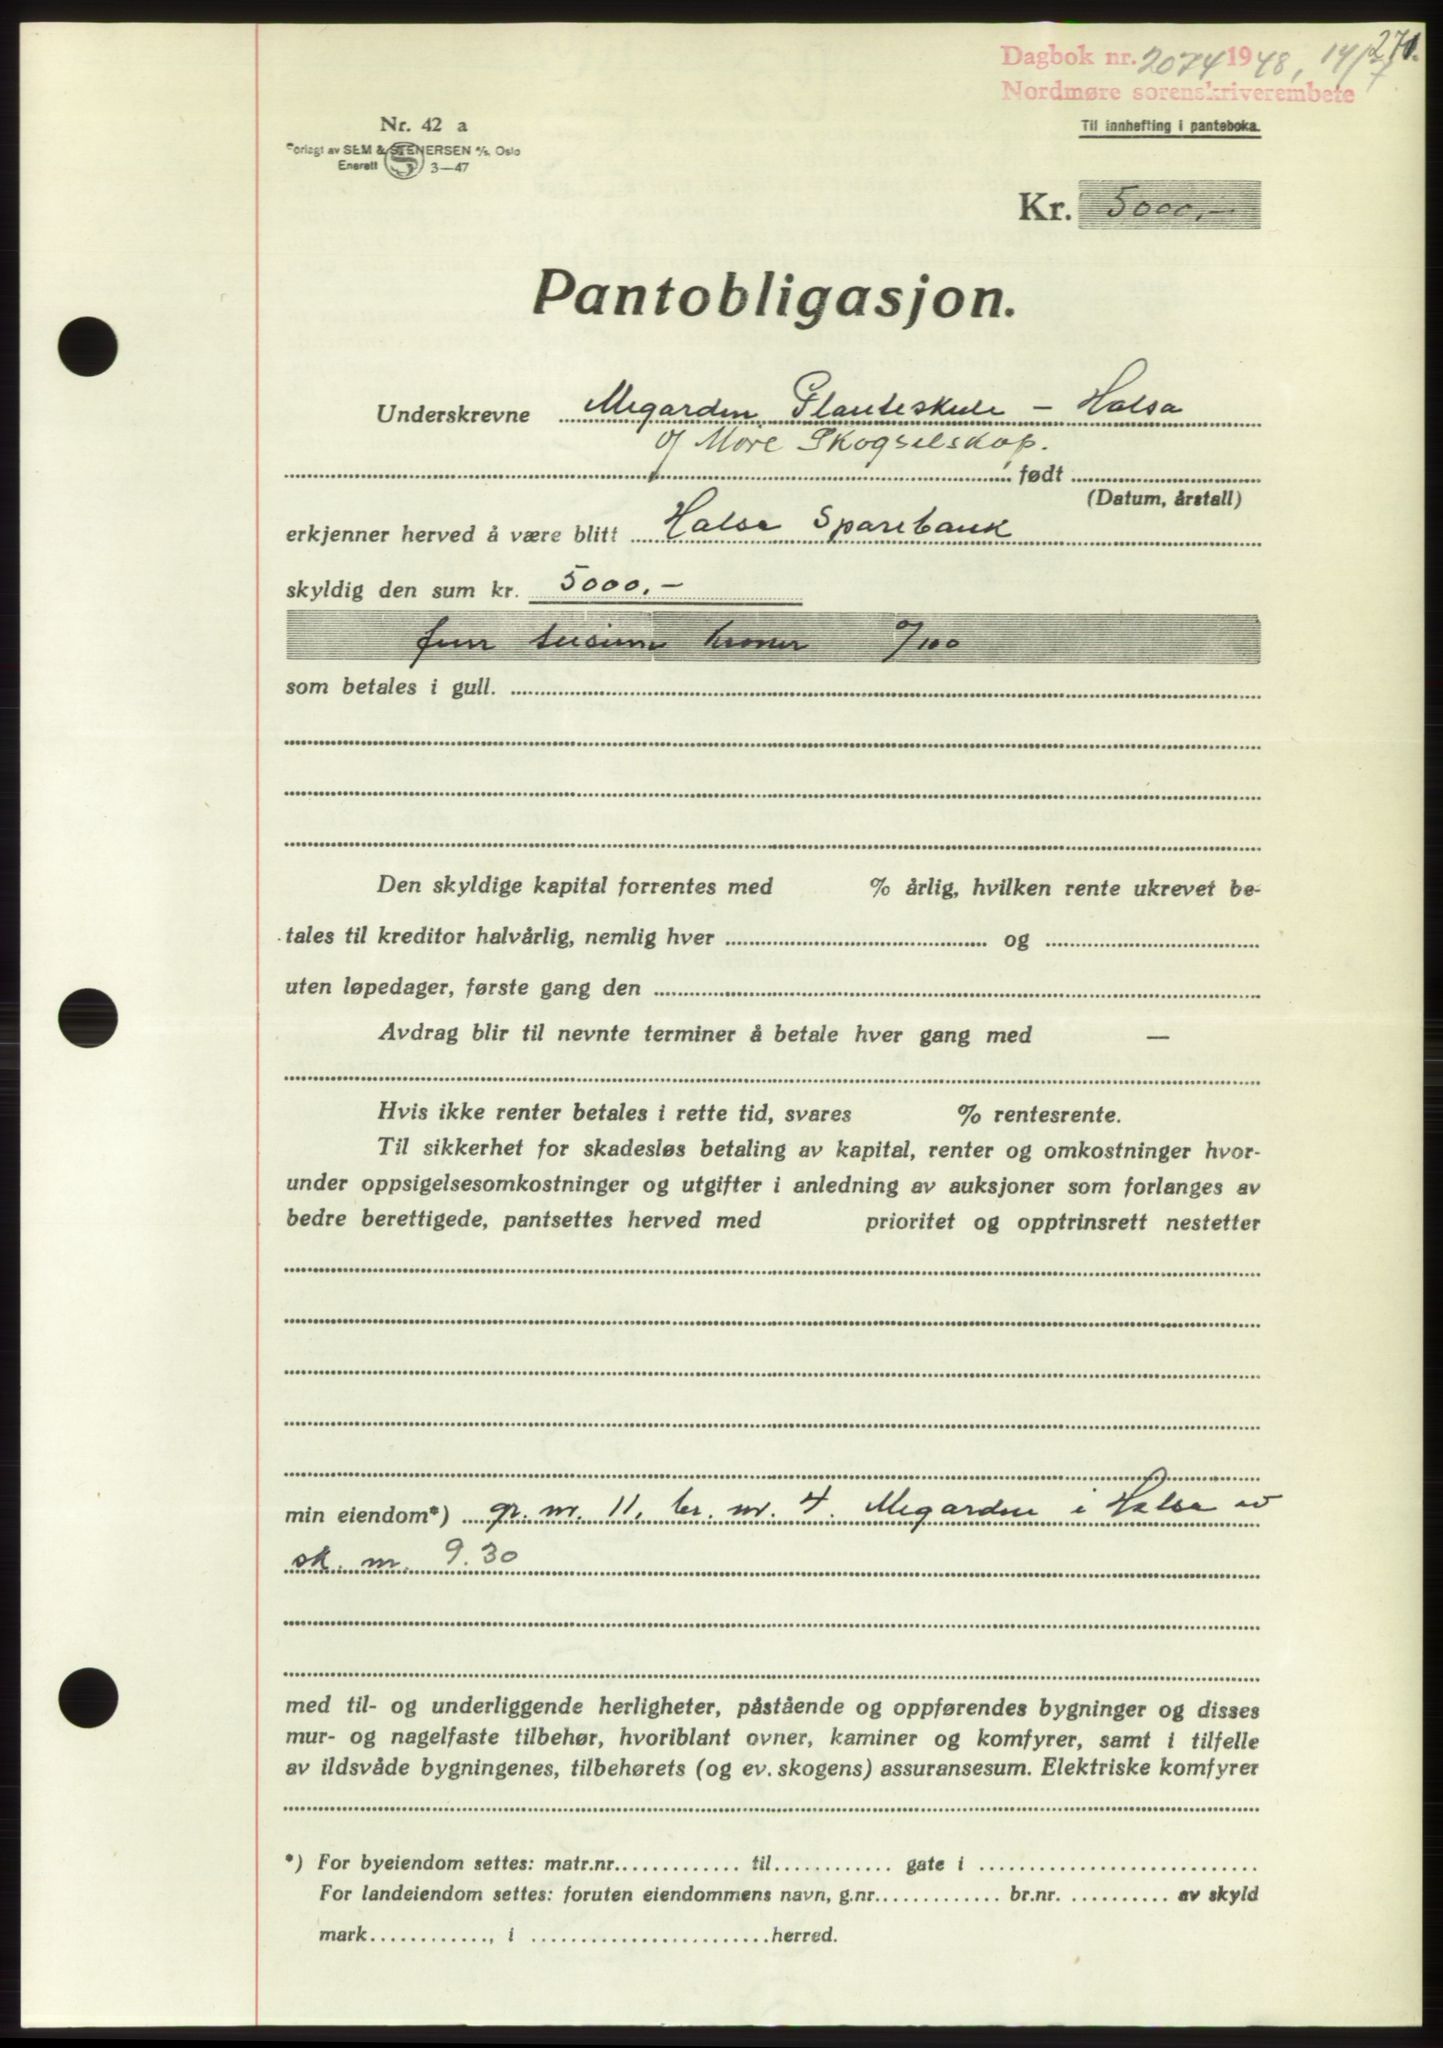 271.
Dagbok nr. 2074 1948, 14/7
Nordmøre sorenskriverembete
Til innhefting i panteboka.
Nr. 42 a
Forlagt av SEM & STENERSEN A/S, Oslo
Enerett 3—47
Kr. 5000,-
Pantobligasjon.
Underskrevne Megarden Planteskule - Halsa
Møre Skogselskap.
født
(Datum, årstall)
erkjenner herved å være blitt Halsa Sparebank
skyldig den sum kr. 5000,-
fem tusium kroner 0/100
som betales i gull.
Den skyldige kapital forrentes med % årlig, hvilken rente ukrevet be-
tales til kreditor halvårlig, nemlig hver og
uten løpedager, første gang den
Avdrag blir til nevnte terminer å betale hver gang med —
Hvis ikke renter betales i rette tid, svares % rentesrente.
Til sikkerhet for skadesløs betaling av kapital, renter og omkostninger hvor-
under oppsigelsesomkostninger og utgifter i anledning av auksjoner som forlanges av
bedre berettigede, pantsettes herved med prioritet og opptrinsrett nestetter
min eiendom*) gr. nr. 11, br. nr. 4. Megarden i Halsa av
sk. m. 9.30
med til- og underliggende herligheter, påstående og oppførendes bygninger og disses
mur- og nagelfaste tilbehør, hvoriblant ovner, kaminer og komfyrer, samt i tilfelle
av ildsvåde bygningenes, tilbehørets (og ev. skogens) assuransesum. Elektriske komfyrer
*) For byeiendom settes: matr.nr. til gate i
For landeiendom settes: foruten eiendommens navn, g.nr. br.nr. av skyld
mark , i herred.